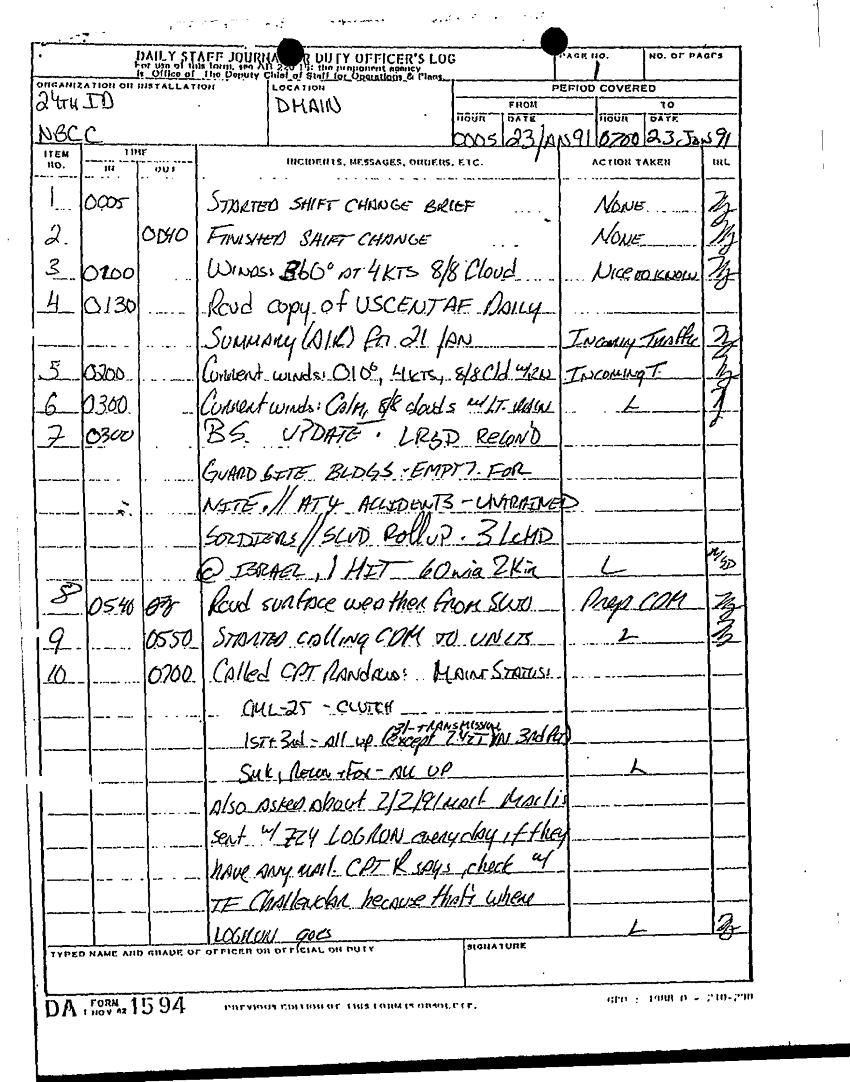 DAILY STAFF JOURNAL OR DUTY OFFICER'S LOG
For use of this form, see AR 220-15; the proponent agency
is Office of The Deputy Chief of Staff for Operations & Plans.
PAGE NO.
1
NO. OF PAGES
ORGANIZATION OR INSTALLATION
24TH ID
NBCC
LOCATION
DMAIN
PERIOD COVERED
FROM TO
HOUR DATE HOUR DATE
0005 23 JAN 91 0700 23 JAN 91
ITEM NO. TIME INCIDENTS, MESSAGES, ORDERS, ETC. ACTION TAKEN INL
IN OUT
1 0005 STARTED SHIFT CHANGE BRIEF NONE
2. 0040 FINISHED SHIFT CHANGE NONE
3 0100 WINDS: 360° AT 4KTS 8/8 Cloud NICE TO KNOW
4 0130 Rcvd copy of USCENTAF DAILY
SUMMARY (AIR) for 21 JAN Incoming Traffic
5 0200 Current winds: 010°, 4KTS, 8/8 Cld w/RN INCOMING T.
6 0300 Current winds: Calm, 8/8 clouds w/ LT. RAIN
7 0300 B.S. UPDATE. LRSD Recon'd
GUARD SITE BLDGS - EMPTY FOR
NITE. // AT4 ACCIDENTS - UNTRAINED
SOLDIERS // SCUD Rollup. 3 LCHD
@ ISRAEL, 1 HIT 60 wia 2 Kia
8 0540 Rcvd surface weather from SWO Prep CDM
9 0550 STARTED calling CDM TO UNITS
10 0700 Called CPT : MAINT STATUS:
CML-25 - CLUTCH
3/-TRANSMISSION
1ST + 3rd - All up (except 742T IN 3rd Plt)
Smk, Recon + Fox - ALL UP
Also asked about 2/2/91 mail. Mail is
sent w/ 724 LOGRUN everyday if they
have any mail. CPT R says, check w/
TF Challender because that's where
LOGRUN goes
TYPED NAME AND GRADE OF OFFICER OR OFFICIAL ON DUTY
SIGNATURE
DA FORM 1 NOV 62 1594
PREVIOUS EDITION OF THIS FORM IS OBSOLETE.
GPO : 1988 O - 210-290